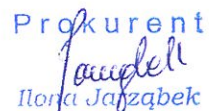 Prokurent
Ilona Jarząbek